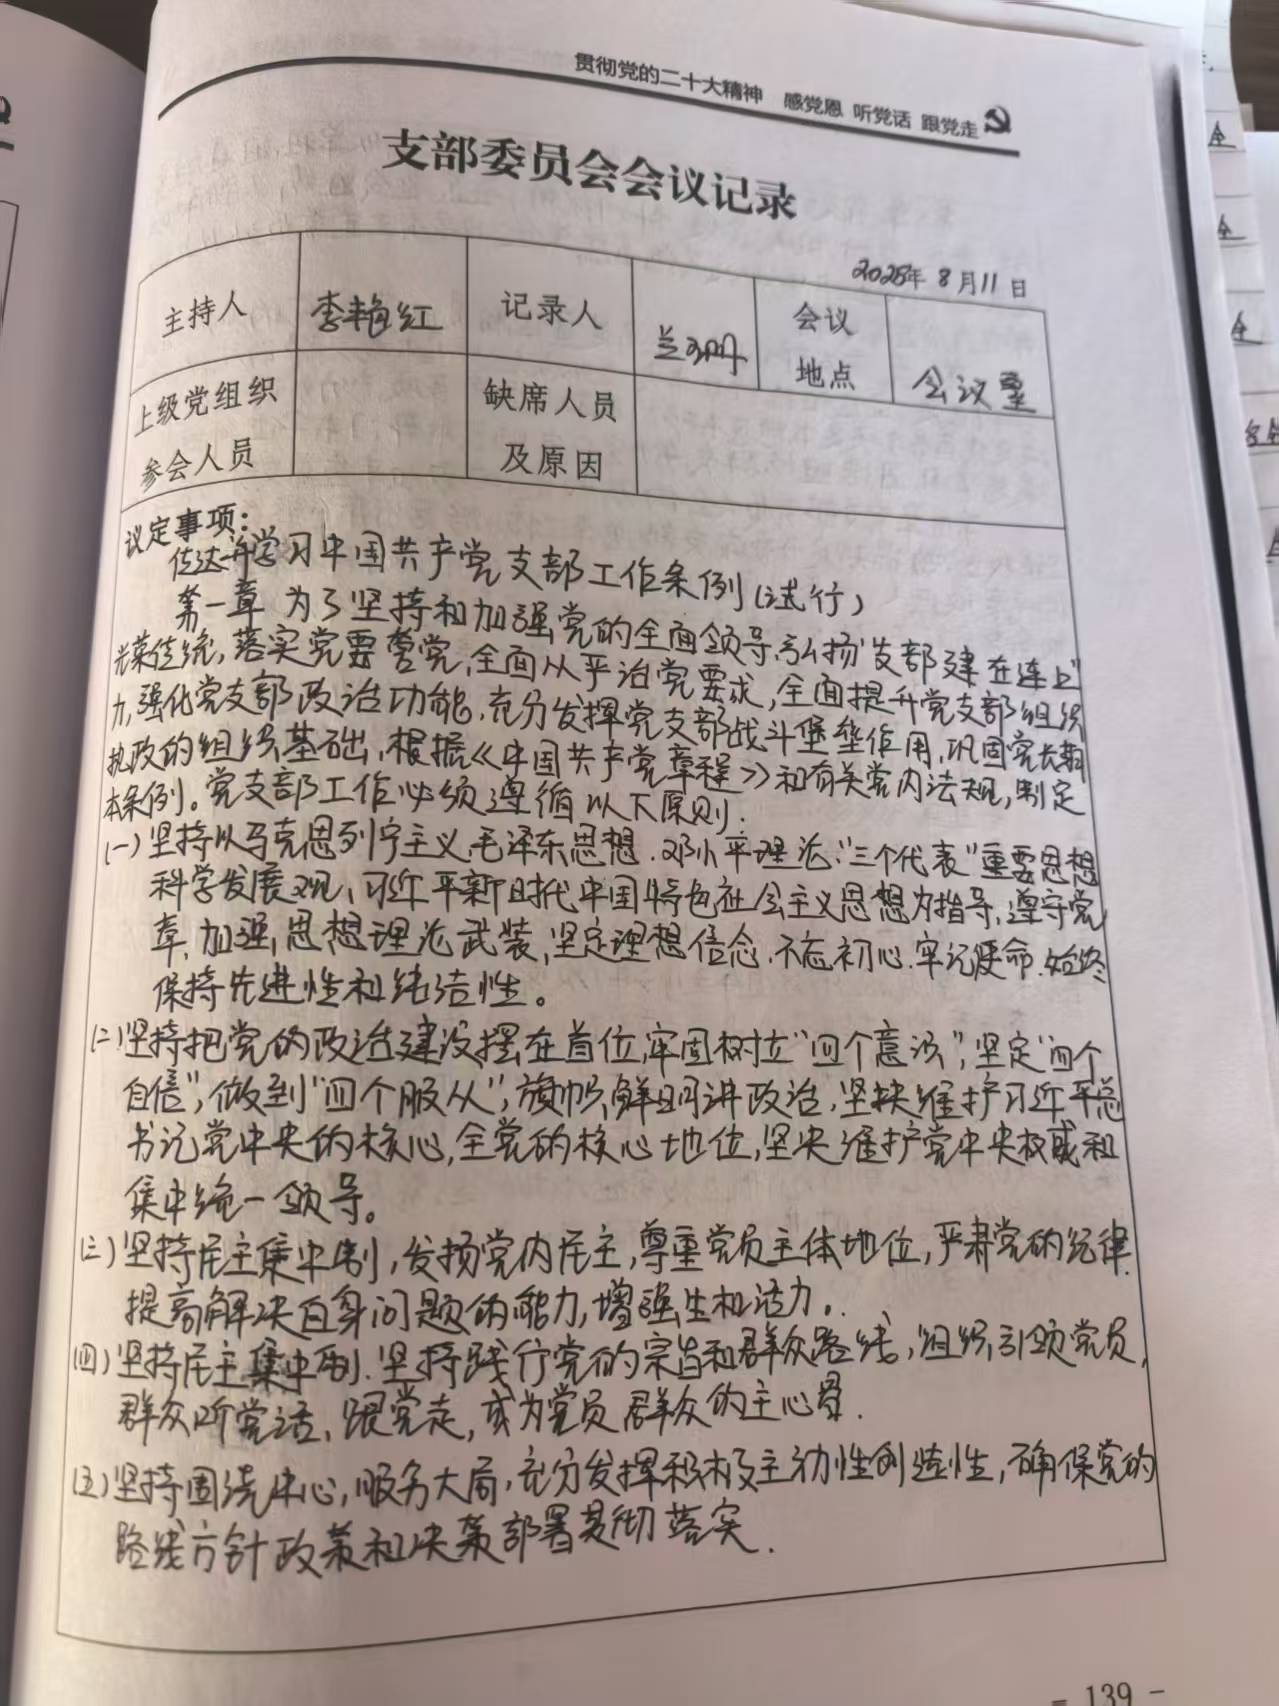 贯彻党的二十大精神 感党恩 听党话 跟党走
支部委员会会议记录
2025年8月11日
主持人 李艳红 记录人 兰 会议地点 会议室
上级党组织参会人员 缺席人员及原因
议定事项:
传达并学习中国共产党支部工作条例(试行)
第一章 为了坚持和加强党的全面领导,弘扬"支部建在连上"
光荣传统,落实党要管党,全面从严治党要求,全面提升党支部组织
力,强化党支部政治功能,充分发挥党支部战斗堡垒作用,巩固党长期
执政的组织基础,根据《中国共产党章程》和有关党内法规,制定
本条例。党支部工作必须遵循以下原则:
(一)坚持以马克思列宁主义、毛泽东思想、邓小平理论、"三个代表"重要思想
科学发展观、习近平新时代中国特色社会主义思想为指导,遵守党
章,加强思想理论武装,坚定理想信念,不忘初心、牢记使命,始终
保持先进性和纯洁性。
(二)坚持把党的政治建设摆在首位,牢固树立"四个意识",坚定"四个
自信",做到"四个服从",旗帜鲜明讲政治,坚决维护习近平总
书记党中央的核心,全党的核心地位,坚决维护党中央权威和
集中统一领导。
(三)坚持民主集中制,发扬党内民主,尊重党员主体地位,严肃党的纪律,
提高解决自身问题的能力,增强生机活力。
(四)坚持民主集中制.坚持践行党的宗旨和群众路线,组织引领党员,
群众听党话、跟党走,成为党员群众的主心骨.
(五)坚持围绕中心,服务大局,充分发挥积极主动性创造性,确保党的
路线方针政策和决策部署贯彻落实.
- 139 -